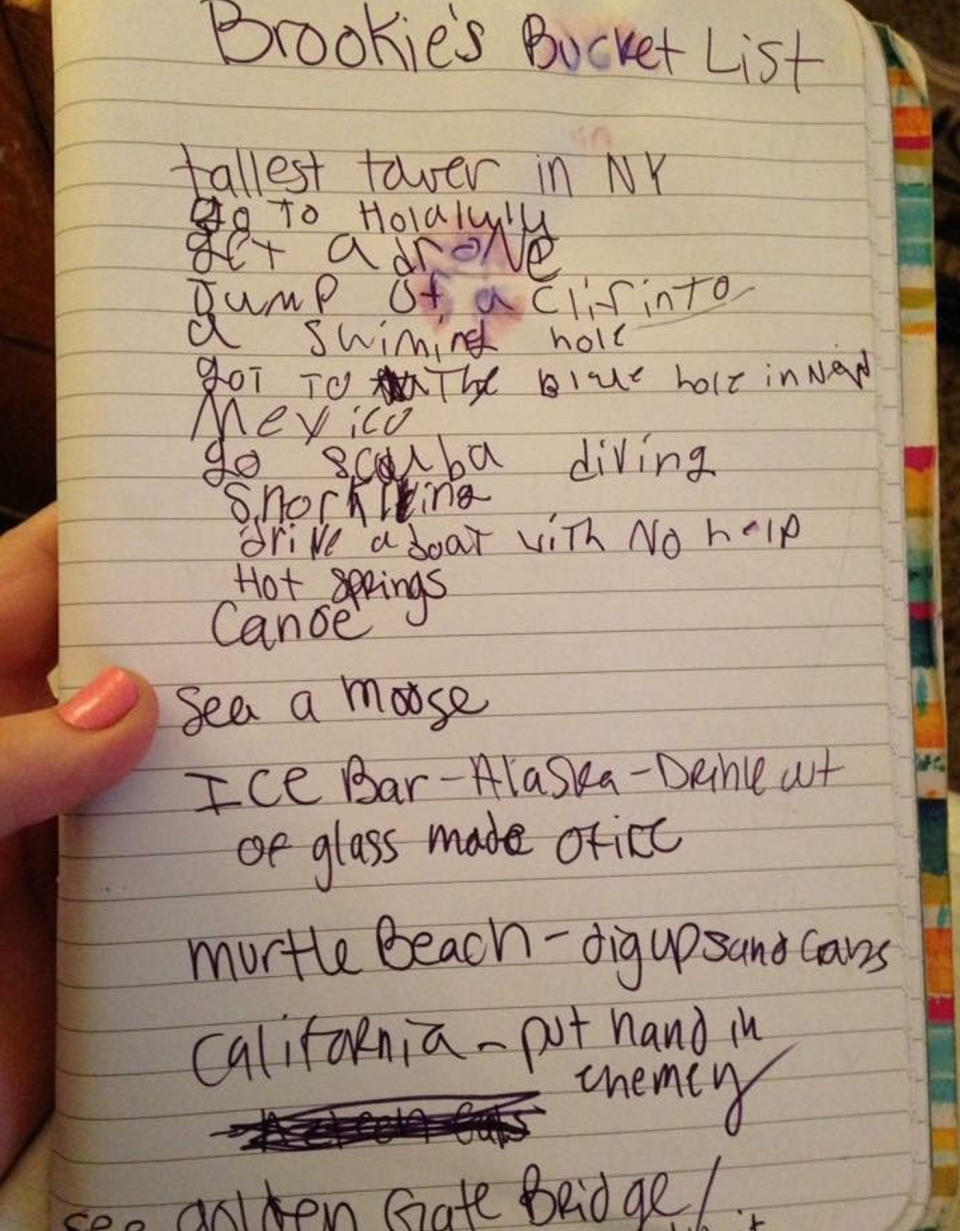 Brookie's Bucket List
tallest tower in NY
go to Holalulu
get a droNe
Jump of a Clif into
a swiming hole
got TO The Blue hole in New
Mexico
go scauba diving
Snorkling
drive a boat with No help
Hot springs
Canoe
See a moose
ICE Bar - Alaska - Drink out
of glass made of ice
murtle Beach - dig up sand Crabs
California - put hand in
enemey
see golden Gate Bridge /